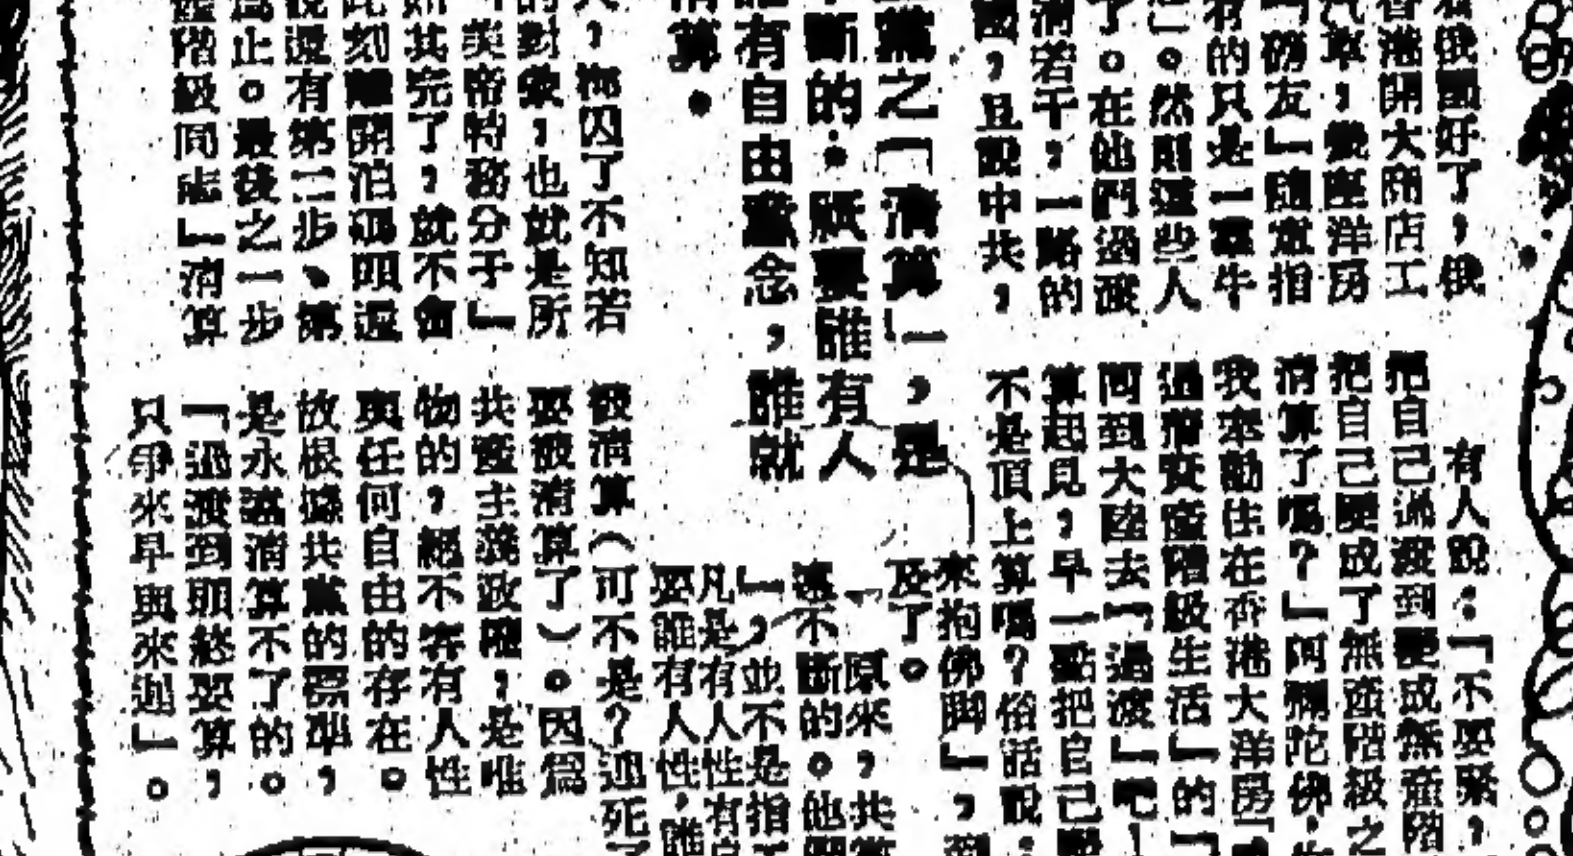 俄國好了，俄
香港開大商店工
汽車，幾座洋房
「磅友」隨意指
有的只是一羣牛
」。然則這些人
了。在他們過渡
清若干，一路的
國，且說中共，
黨之「清算」，是
不斷的．祇要誰有人
誰有自由意念，誰就
清算．
，都囚了不知若
的對象，也就是所
「美帝特務分子」
如其完了，就不會
此刻離開泊碼頭還
說還有第二步、第
爲止。最後之一步
產階級同志」清算
有人說：「不要緊，
把自己過渡到變成無產階
把自己變成了無產階級之
清算了嗎？」阿彌陀佛，
我奉勸住在香港大洋房「
過着資產階級生活」的「
回到大陸去「過渡」吧！
算起見，早一點把自己
不是頂上算嗎？俗話說：
來抱佛脚」，
及了。
「原來，共黨
遠不斷的。他們
」，並不是指
凡是有人性有自
要誰有人性，誰
被清算（可不是？迴死了
要被清算了）。因爲
共產主義政權，是唯
物的，絕不容有人性
與任何自由的存在。
故根據共黨的標準，
是永遠清算不了的。
「過渡到那終要算，
只爭來早與來遲」。